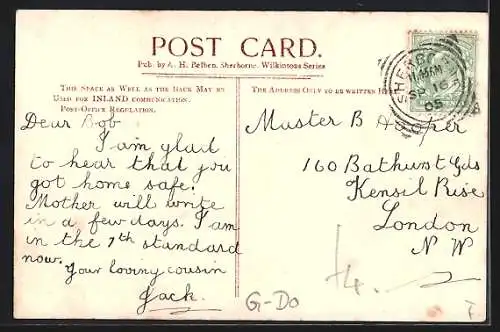 POST CARD.
Pub. by A. H. Belben. Sherborne. Wilkinsons Series
This Space as Well as the Back May be
Used for INLAND communication.
Post-Office Regulation.
The Address Only to be written Here
SHERBO
11.45AM
SP 16
05
Dear Bob
I am glad
to hear that you
got home safe.
Mother will write
in a few days. I am
in the 7th standard
now.
Your loving cousin
Jack.
Master B Hooper
160 Bathurst Gds
Kensil Rise
London
N W
G-Do
7